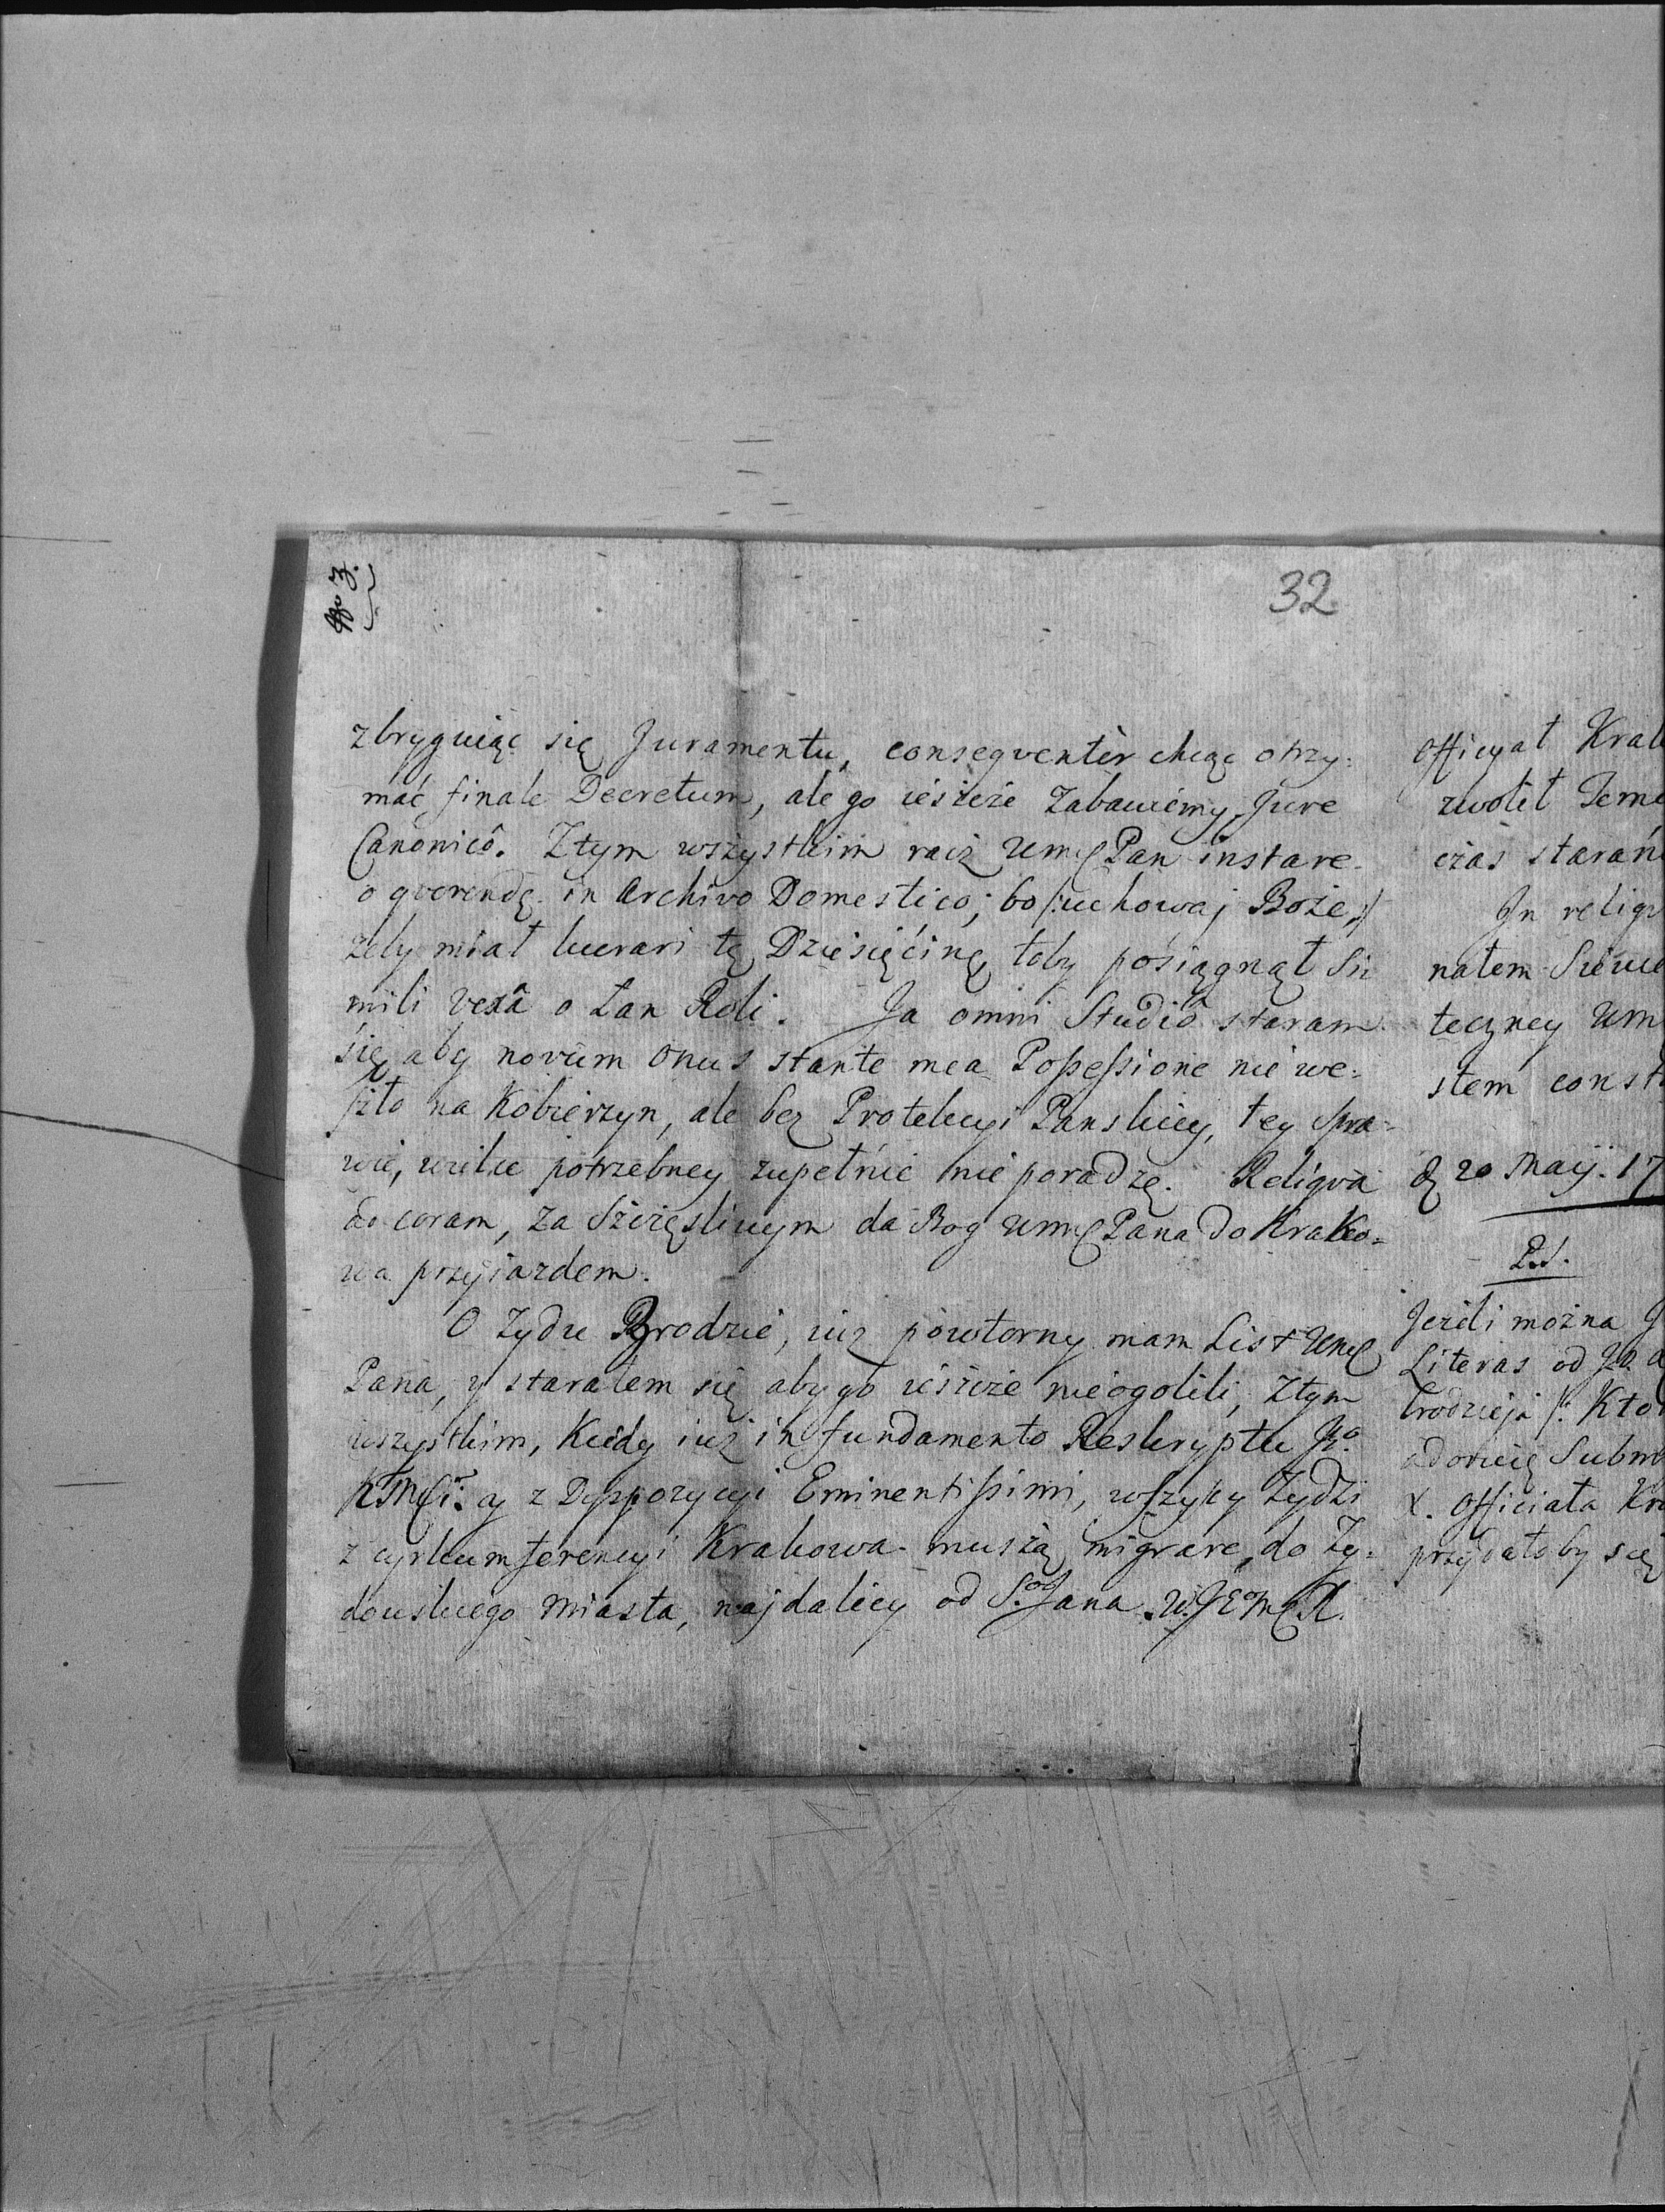 32
zbryguiąc się Juramentu, conseqventèr chcąc otrzy:
mać finale Decretum, ale go ieszcze zabawiemy Jure
Canonicô. Ztym wszystkim racz Umć Pan instare
o qverendę in Archivo Domestico; bo /:uchowaj Boże:/
żeby miał lucrari tę Dziesięcinę, toby posiągnął Si
mili vexâ o Łan Roli. Ja omni Studiô staram
się, aby novum onus stante mea Possessione nie we:
szło na Kobierzyn, ale bez Protekcyi Panskiey, tey Spra=
wie, wielce potrzebney zupełnie nie poradzę. Reliqva
do coram, za Szczęsliwym da Bog Umć Pana do Krako=
wa przyjazdem.
O Zydu Brodzie, iuż powtorny mam List Umć
Pana, y starałem się aby go ieszcze nieogolili, Ztym
wszystkim, kiedy iuż in fundamento Reskryptu Jº.
KMCi: ay z Dyspozycyi Eminentissimi, wszyscy Zydzi
z cyrkumferencyi Krakowa muszą migrare, do Zy=
dowskiego Miasta, najdaliey od S.º Jana. W.JEMCX.
Officyał Krak
zwolił Jeme
czas staran
In reliqv
nałem Siewie
teczney Um
stem const
d 20 Maij. 17
P.S.
Jeżeli można J
Literas od Jo. 
brodzieja /: Kto
adorucię Subm
X. Officiała Kra
przydałoby się